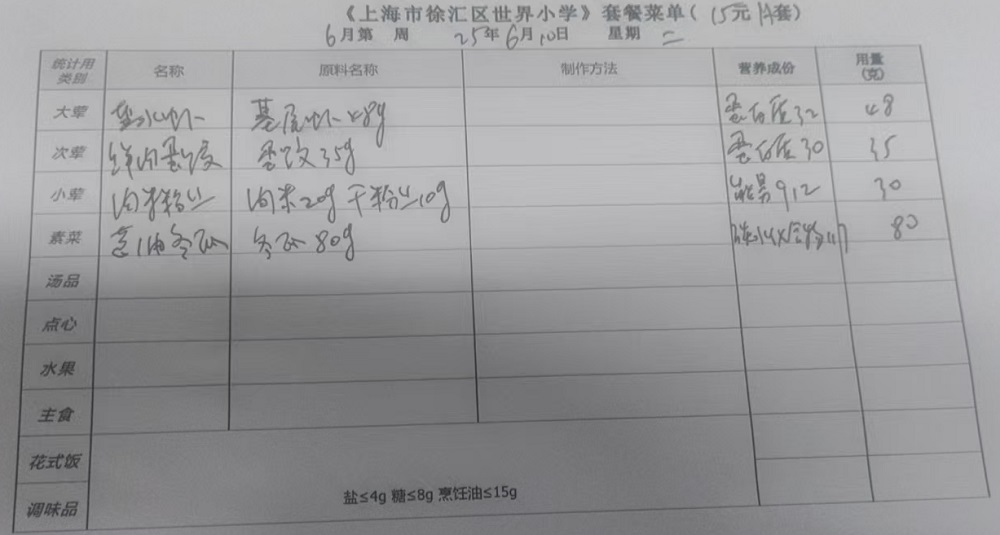 《上海市徐汇区世界小学》套餐菜单（15元/套）
6月第 周 25年6月10日 星期二
统计用类别 名称 原料名称 制作方法 营养成份 用量(克)
大荤 盐水虾 基尾虾48g 蛋白质32 48
次荤 鲜肉蛋饺 蛋饺35g 蛋白质30 35
小荤 肉末粉丝 肉末20g 干粉丝10g 能量912 30
素菜 冬瓜 冬瓜80g 碳水化合物 80
汤品
点心
水果
主食
花式饭
调味品 盐≤4g 糖≤8g 烹饪油≤15g